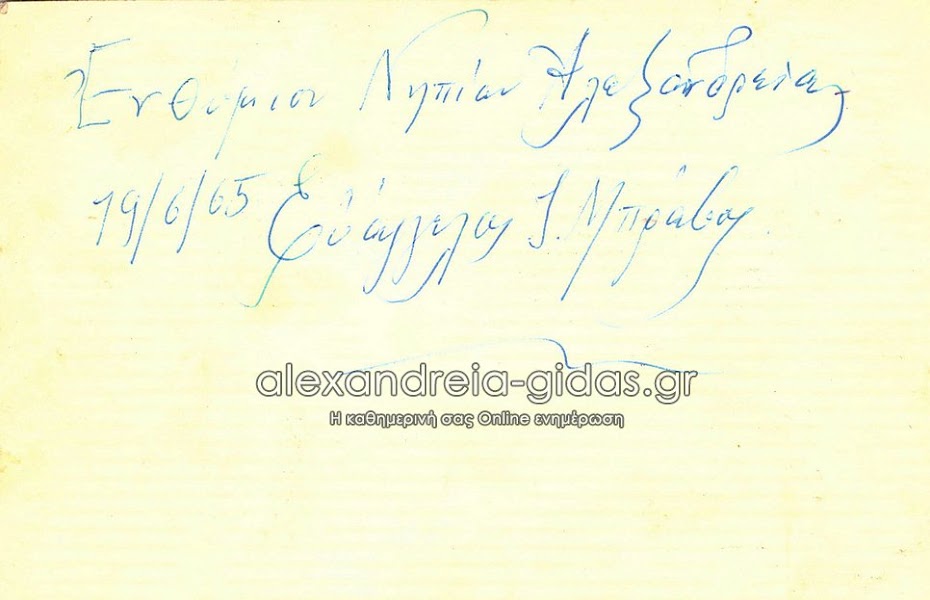 Ενθύμιον Νηπίων Αλεξανδρείας
19/6/65 Ευάγγελος Ι. Μπράβος
alexandreia-gidas.gr
Η καθημερινή σας Online ενημέρωση